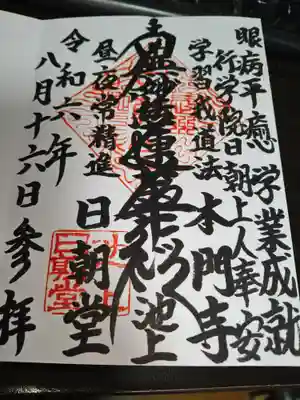 眼病平癒 学業成就
行学院日朝上人奉安
学習我道法
昼夜常精進
南無妙法蓮華経
池上
本門寺
日朝堂
令和六年
八月十六日参拝
日朝堂